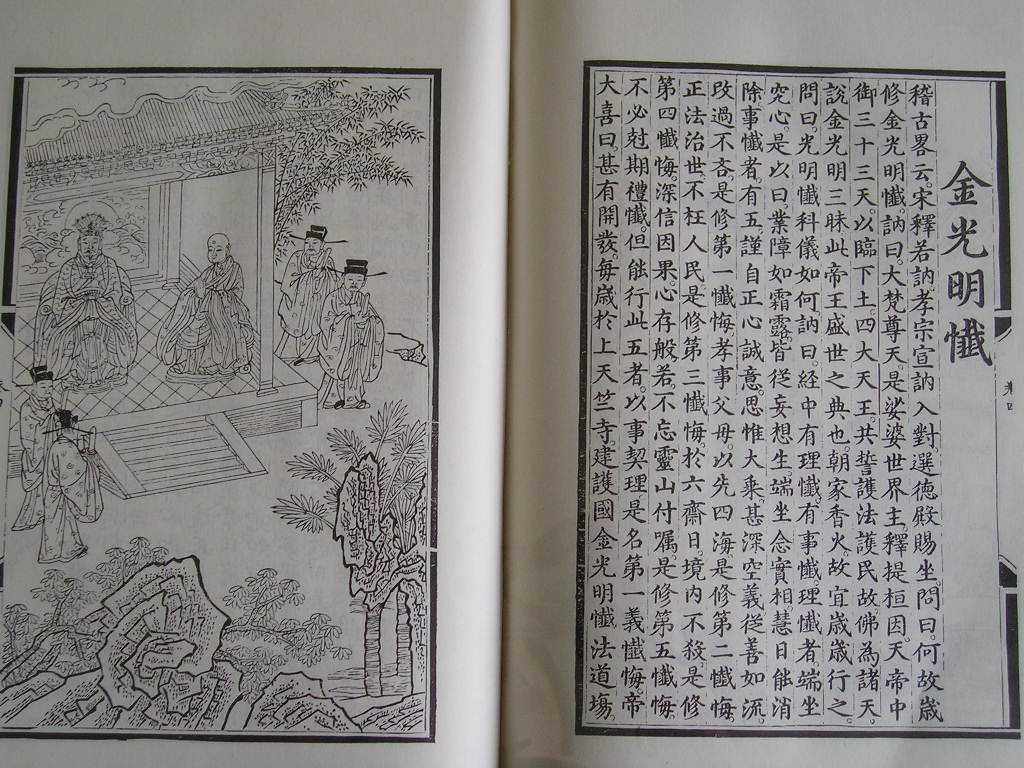 金光明懺
稽古畧云。宋釋若訥孝宗宣訥入對。選德殿賜坐。問曰。何故歲
修金光明懺。訥曰。大梵尊天。是娑婆世界主。釋提桓因。天帝中
御三十三天。以臨下土。四大天王。共誓護法護民。故佛為諸天。
說金光明三昧。此帝王盛世之典也。朝家香火。故宜歲歲行之。
問曰。光明懺科儀如何。訥曰。經中有理懺。有事懺。理懺者。端坐
究心。是以曰。業障如霜露。皆從妄想生。端坐念實相。慧日能消
除。事懺者有五。謹自正心誠意。思惟大乘。甚深空義。從善如流。
改過不吝。是修第一懺悔。孝事父母。以先四海。是修第二懺悔。
正法治世。不枉人民。是修第三懺悔。於六齋日。境內不殺。是修
第四懺悔。深信因果。心存般若。不忘靈山付囑。是修第五懺悔。
不必尅期禮懺。但能行此五者。以事契理。是名第一義懺悔。帝
大喜曰。甚有開發。每歲於上天竺寺建護國金光明懺法道場。
卷四